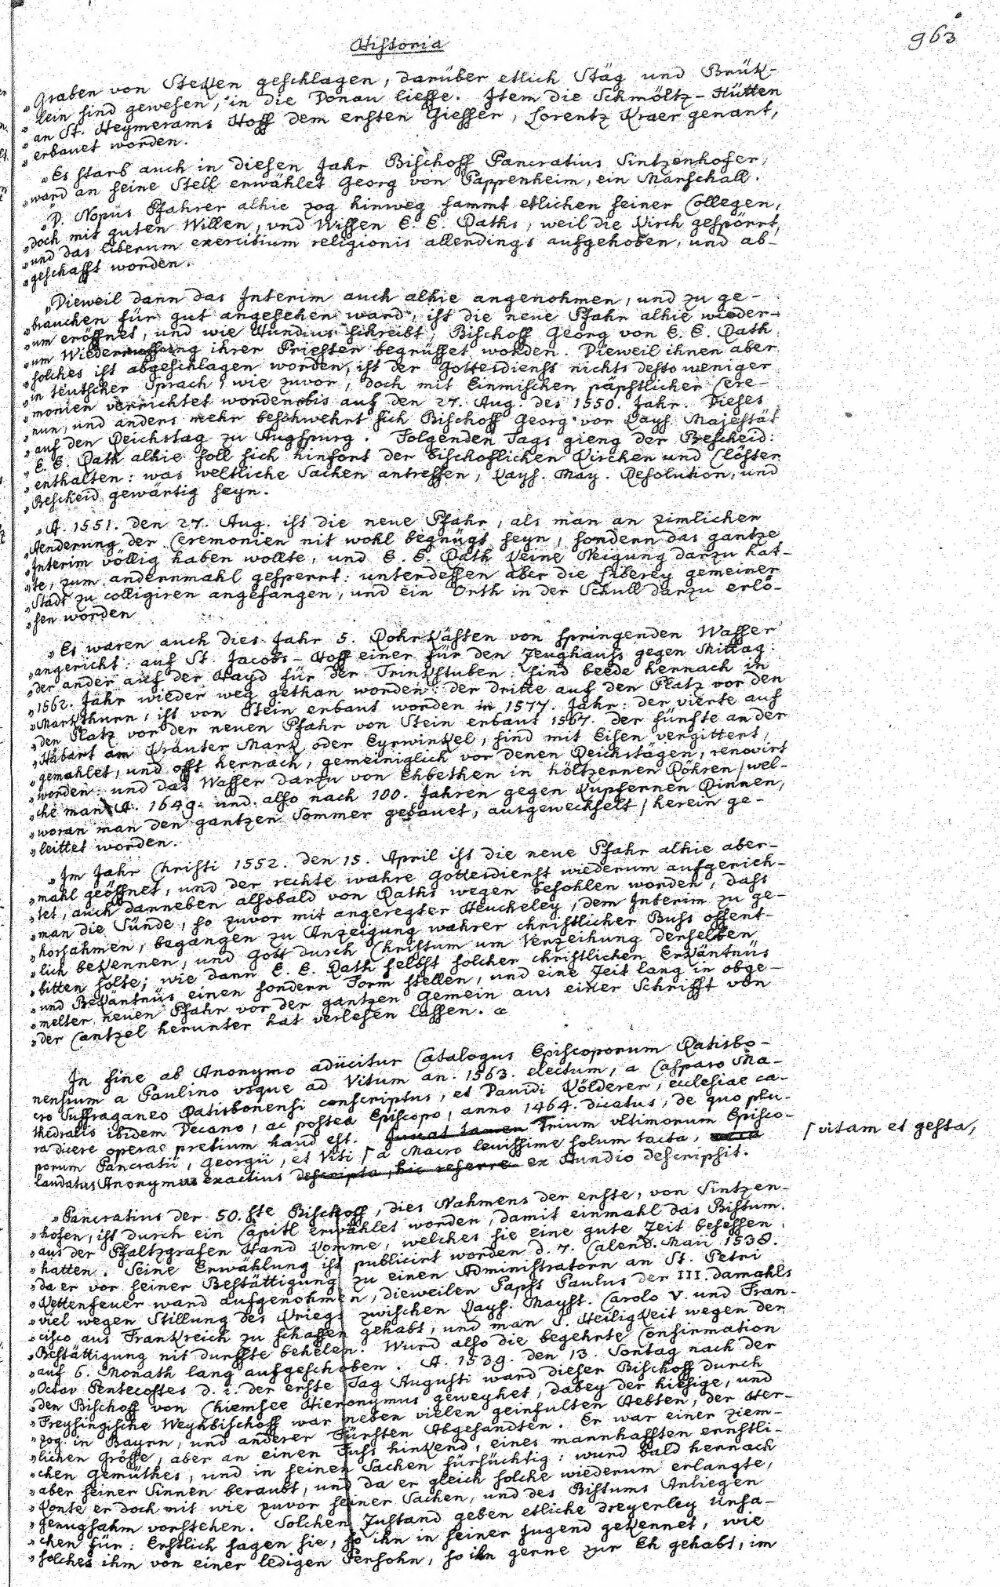 Historia
963
„Graben von Stecken geschlagen, darüber etlich Stäg und Brük-
„klein sind gewesen, in die Donau liesse. Item die Schmöltz-Hütten
„an St. Heymerams Hoff dem ersten Giesser, Lorentz Kraer genant,
„erbauet worden.
„Es starb auch in diesen Jahr Bischoff Pancratius Sintzenhofer,
„ward an seine Stell erwählet Georg von Pappenheim, ein Marschall.
„D. Nopus Pfahrer alhie zog hinweg sammt etlichen seiner Collegen,
„doch mit guten Willen, und Wissen E. E. Raths, weil die Kirch gespörrt,
„und das liberum exercitium religionis allendings aufgehoben, und ab-
„geschafft worden.
„Dieweil dann das Interim auch alhie angenohmen, und zu ge-
„brauchen für gut angesehen ward, ist die neue Pfahr alhie wieder-
„um eröffnet, und wie Hundius schreibt, Bischoff Georg von E. E. Rath
„um ihrer Priester begrüsset worden. Dieweil ihnen aber
„solches ist abgeschlagen worden, ist der Gottesdienst nichts desto weniger
„in teutscher Sprach, wie zuvor, doch mit Einmischen päpstlicher Cere-
„monien verrichtet worden bis auf den 27. Aug. des 1550. Jahr. Dieses
„nun, und anders mehr beschwehrt sich Bischoff Georg vor Kays. Majestät
„auf den Reichstag zu Augspurg. Folgenden Tags gieng der Bescheid:
„E. E. Rath alhie soll sich hinfort der Bischoflichen Kirchen und Clöster
„enthalten: was weltliche Sachen antreffen, Kays. May. Resolution, und
„Bescheid gewärtig seyn.
„A. 1551. den 27. Aug. ist die neue Pfahr, als man an zimlichen
„Aenderung der Ceremonien nit wohl begnügt seyn, sondern das gantze
„Interim völlig haben wollte, und E. E. Rath keine Neigung darzu hat-
„te, zum andernmahl gesperrt: unterdessen aber die Liberey gemeiner
„Stadt zu colligiren angefangen, und ein Orth in der Schull darzu erlö-
„sen worden
„Es waren auch dies Jahr 5. Rohrkästen von springenden Wasser
„angericht: auf St. Jacobs-Hoff einer für den Zeughauss gegen Mittag:
„der ander auf der Hayd für der Trinkstuben: sind beede hernach in
„1562. Jahr wieder weg gethan worden: der dritte auf den Platz vor den
„Markthurn, ist von Stein erbaut worden in 1577. Jahr: der vierte auf
„den Platz vor der neuen Pfahr von Stein erbaut 1567. der fünfte an der
„Habart am Kräuter Mark oder Eyrwinkel, sind mit Eisen vergittert,
„gemahlet, und offt hernach, gemeiniglich vor denen Reichstägen, renovirt
„worden: und das Wasser darzu von Ehbethen in höltzernen Röhren/ wel-
„che man A. 1649. und also nach 100. Jahren gegen Kupfernen Rinnen,
„woran man den gantzen Sommer gebauet, ausgewechselt/ herein ge-
„leittet worden.
„Im Jahr Christi 1552. den 15. April ist die neue Pfahr alhie aber-
„mahl geöffnet, und der rechte wahre Gottesdienst wiederum aufgerich-
„tet, auch danneben alsobald von Raths wegen befohlen worden, dass
„man die Sünde, so zuvor mit angeregter Heucheley, dem Interim zu ge-
„horsahmen, begangen zu Anzeigung wahrer christlicher Buss offent-
„lich bekennen, und Gott durch Christum um Verzeihung derselben
„bitten solte; wie dann E. E. Rath selbst solcher christlichen Erkäntnüs
„und Bekäntnüs einen sondern Form stellen, und eine Zeit lang in obge-
„melter neuen Pfahr vor der gantzen Gemein aus einer Schrifft von
„der Cantzel herunter hat verlesen lassen.
In fine ab Anonymo adücitur Catalogus Episcoporum Ratisbo-
nensium a Paulino vsque ad Vitum an. 1563. electum, a Casparo Ma-
cro Suffraganeo Ratisbonensi conscriptus, et Davidi Kölderer, ecclesiae ca-
thedralis ibidem Decano, ac postea Episcopo, anno 1464. dicatus, de quo plu-
ra dicere operae pretium haud est. Juvat tamen Trium vltimorum Episco-
porum Pancratii, Georgii, et Viti ⌈ a Macro levissime solum tacta,
⌈ vitam et gesta,
laudatus Anonymus exactius descripta, hic referre ex Hundio descripsit.
„Pancratius der 50.ste Bischoff, dies Nahmens der erste, von Sintzen-
„hofen, ist durch ein Capitl erwählet worden, damit einmahl das Bistum
„aus der Pfaltzgrafen Hand komme, welches sie eine gute Zeit besessen
„hatten. Seine Erwählung ist publicirt worden d. 7. Calend. Maii 1538.
„da er vor seiner Bestättigung zu einen Administratorn an St. Petri
„Kettenfeuer ward aufgenohmen, dieweilen Papst Paulus der III. damahls
„viel wegen Stillung des Kriegs zwischen Kays. Mayst. Carolo V. und Fran-
„cisco aus Frankreich zu schaffen gehabt, und man S. Heiligkeit wegen der
„Bestättigung nit durffte behelen. Wurd also die begehrte Confirmation
„auf 6. Monath lang aufgeschoben. A. 1539. den 13. Sontag nach der
„Octav Pentecostes d. i. der erste Tag Augusti ward dieser Bischoff durch
„den Bischoff von Chiemsee Hieronymus geweyhet, dabey der hiesige, und
„Freysingische Weyhbischoff war neben vielen geinfulten Aebten, der Her-
„zog in Bayrn, und anderer Fürsten Abgesandten. Er war einer ziem-
„lichen Grösse, aber an einen Fuss hinkend, eines mannhafften ernstli-
„chen Gemüthes, und in seinen Sachen fürsüchtig: wurd bald hernach
„aber seiner Sinnen beraubt, und da er gleich solche wiederum erlangte,
„konte er doch mit wie zuvor seiner Sachen, und des Bistums Anliegen
„genugsahm vorstehen. Solchen Zustand geben etliche dreyerley Ursa-
„chen für: Erstlich sagen sie, so ihn in seiner Jugend gekennet, wie
„solches ihm von einer ledigen Persohn, so ihn gerne zur Eh gehabt, im